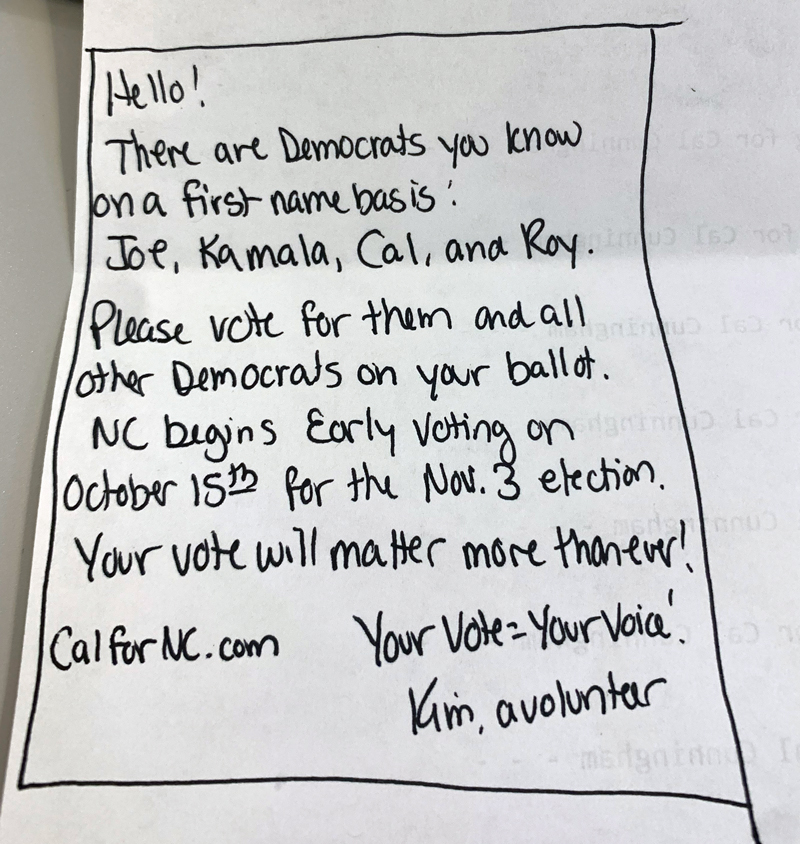 Hello!
There are Democrats you know
on a first name basis:
Joe, Kamala, Cal, and Roy.
Please vote for them and all
other Democrats on your ballot.
NC begins Early Voting on
October 15th for the Nov. 3 election.
Your vote will matter more than ever!
CalforNC.com
Your Vote = Your Voice!
Kim, a volunteer